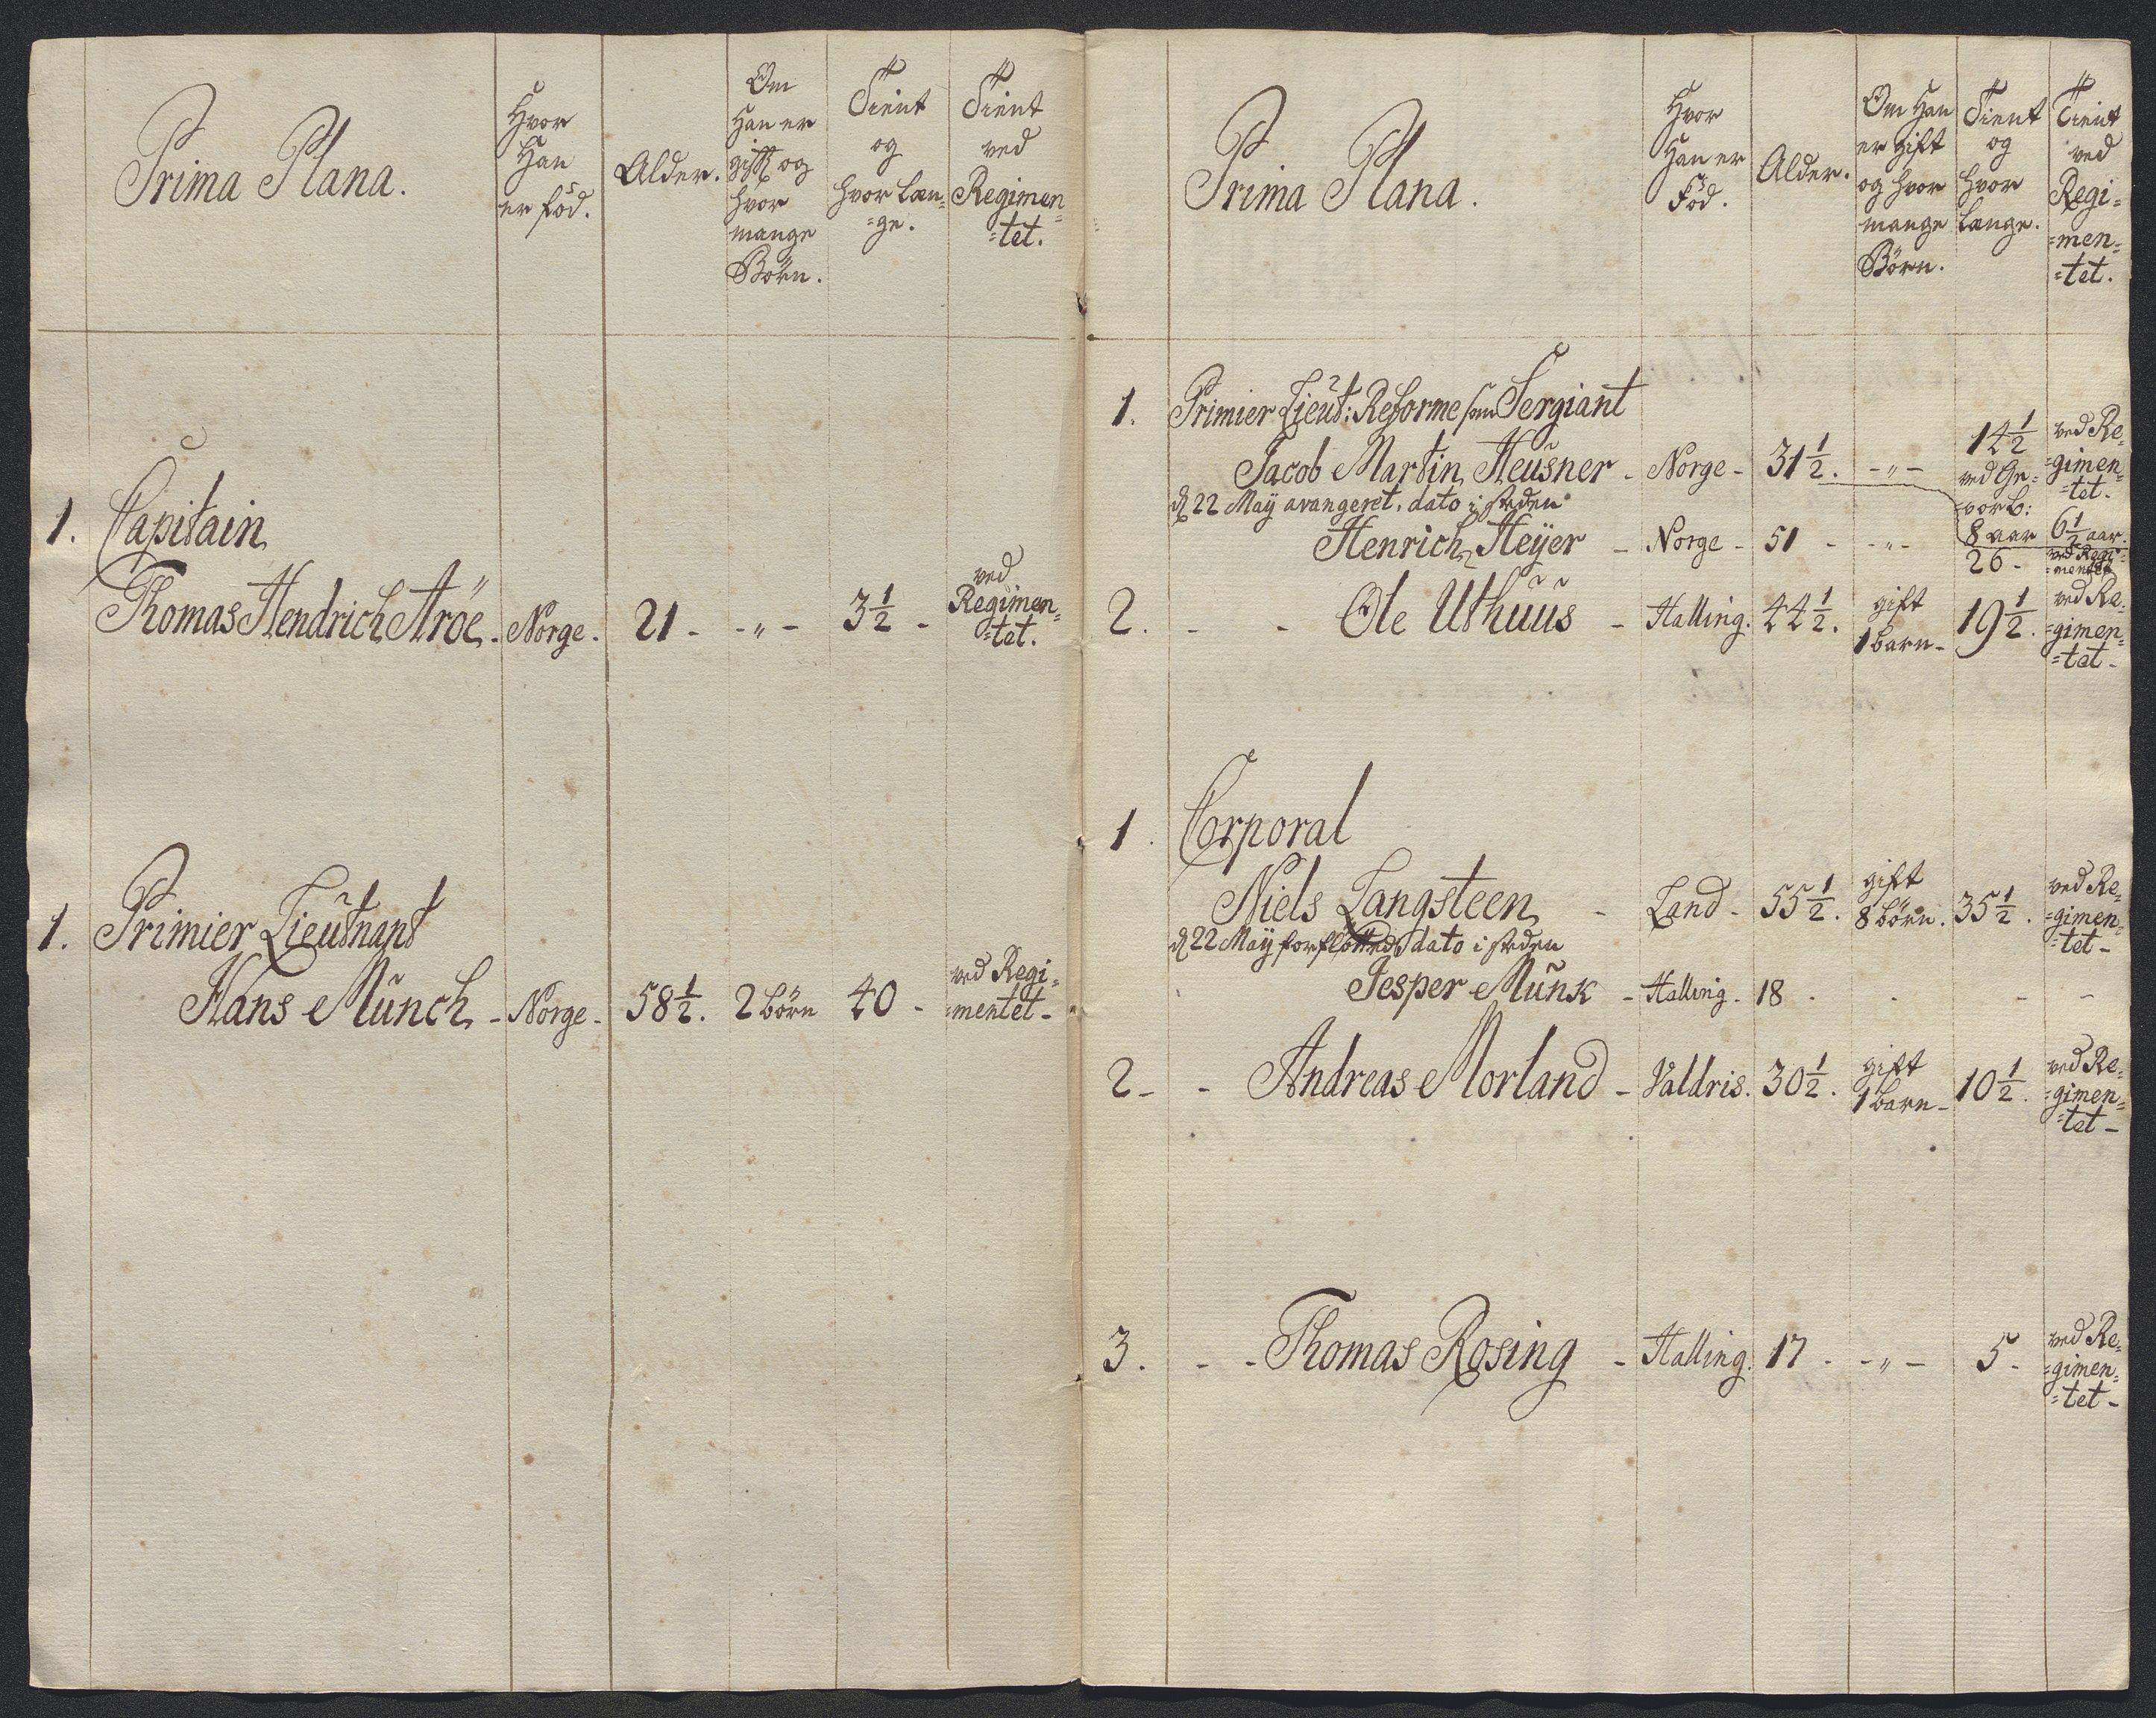 Prima Plana.
Hvor
Han
er född.
Alder.
Om
Han er
gift og
hvor
mange
Börn.
Tient
og
hvor læn=
=ge.
Tient
ved
Regimen=
=tet.
1. Capitain
Thomas Hendrich Aröe - Norge - 21 - - " - 3½ - ved
Regimen=
=tet.
1. Primier Lieutnant
Hans Münch - Norge - 58½. 2 börn 40 - ved Regi=
=mentet -
Prima Plana.
Hvor
Han er
Föd.
Alder.
Om Han
er gift
og hvor
mange
Börn.
Tient
og
hvor
længe.
Tient
ved
Regi=
=men=
=tet.
1. Primier Lieut: Reforme som Sergiant
Jacob Martin Heusner - Norge - 31½. - " - 14½
ved Ge=
=vorb:
8 aar
ved Re=
=gimen=
=tet.
6½ aar.
d 22 May avangeret. dato i steden
Henrich Heyer - Norge - 51 - - " - 26 - ved Regi=
=mentet
2. - - Ole Uthuus - Halling. 44½. gift
1 barn - 19½. ved Re=
=gimen=
=tet -
1. Corporal
Niels Langsteen - Land - 55½. gift
8 börn. 35½. ved Re=
=gimen=
=tet -
d 22 May forflötted dato i steden
Jesper Munk - Halling - 18 . . - -
2 - - Andreas Morland - Valdris. 30½. gift
1 barn - 10½. ved Re=
=gimen=
=tet -
3. - - Thomas Rosing - Halling. 17 - - " - 5 - ved Re=
=gimen=
=tet -